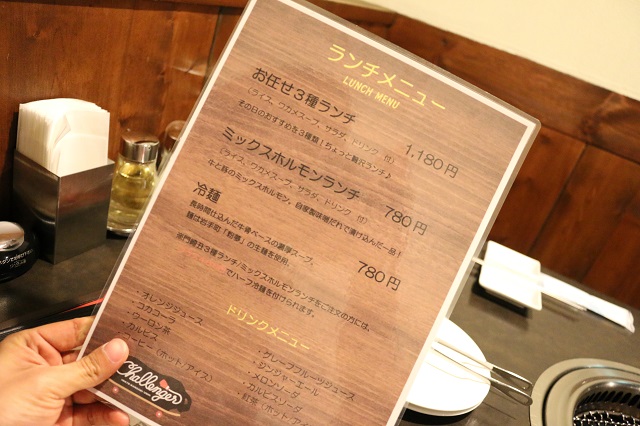 ランチメニュー
LUNCH MENU
お任せ3種ランチ 1,180円
(ライス、ワカメスープ、サラダ、ドリンク 付)
その日のおすすめを3種類!ちょっと贅沢ランチ♪
ミックスホルモンランチ 780円
(ライス、ワカメスープ、サラダ、ドリンク 付)
牛と豚のミックスホルモン。自家製味噌だれで漬け込んだ一品!
冷麺 780円
長時間仕込んだ牛骨ベースの濃厚スープ。
麺は岩手町「 」の生麺を使用。
3種ランチ/ミックスホルモンランチをご注文の方には、
でハーフ冷麺を付けられます。
ドリンクメニュー
・オレンジジュース
・コカコーラ
・ウーロン茶
・カルピス
・コーヒー(ホット/アイス)
・グレープフルーツジュース
・ジンジャーエール
・メロンソーダ
・カルピスソーダ
・紅茶(ホット/アイス
Challenger